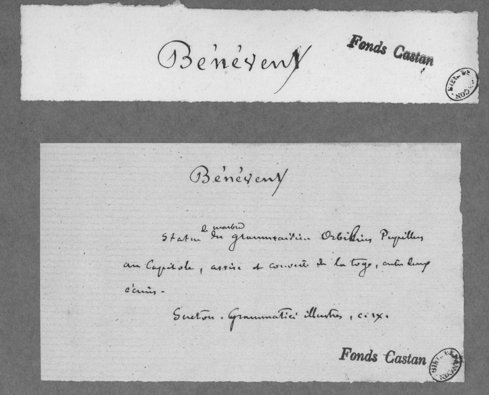 Bénévent
Fonds Castan
Bénévent
de marbre
Statue du grammairien Orbilius Pupillus
au Capitole, assise et couverte de la toge, entre deux
écrins.
Sueton. Grammatici illustres, c. IX.
Fonds Castan